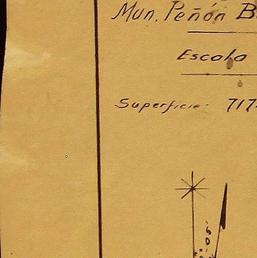 Mun. Peñón B
Escala
Superficie: 717